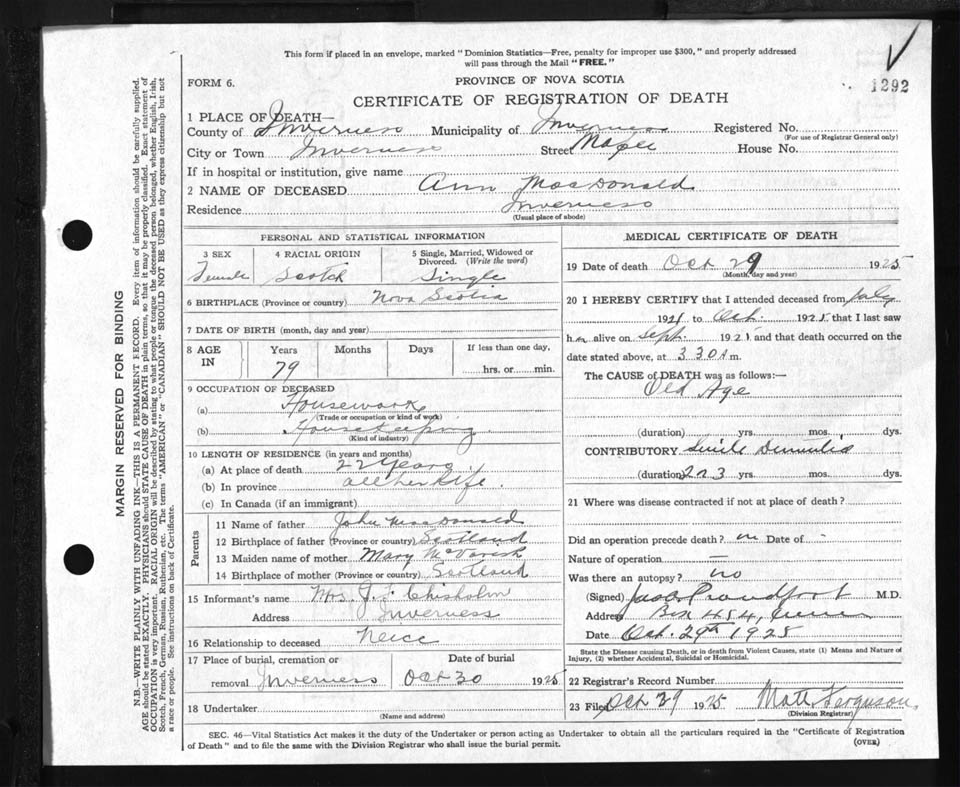 This form if placed in an envelope, marked "Dominion Statistics—Free, penalty for improper use $300," and properly addressed
will pass through the Mail "FREE."
FORM 6.
PROVINCE OF NOVA SCOTIA
1292
CERTIFICATE OF REGISTRATION OF DEATH
1 PLACE OF DEATH—
County of Inverness Municipality of Inverness Registered No.
(For use of Registrar General only)
City or Town Inverness Street House No.
If in hospital or institution, give name
2 NAME OF DECEASED Ann MacDonald
Residence Inverness
(Usual place of abode)
PERSONAL AND STATISTICAL INFORMATION
3 SEX 4 RACIAL ORIGIN 5 Single, Married, Widowed or Divorced. (Write the word)
Female Scotch Single
6 BIRTHPLACE (Province or country) Nova Scotia
7 DATE OF BIRTH (month, day and year)
8 AGE IN Years Months Days If less than one day,
79 hrs. or min.
9 OCCUPATION OF DECEASED
(a) Housework
(Trade or occupation or kind of work)
(b) Housekeeping
(Kind of industry)
10 LENGTH OF RESIDENCE (in years and months)
(a) At place of death 22 Years
(b) In province all her Life.
(c) In Canada (if an immigrant)
Parents
11 Name of father John MacDonald
12 Birthplace of father (Province or country) Scotland
13 Maiden name of mother Mary
14 Birthplace of mother (Province or country) Scotland
15 Informant's name Mrs. J. J. Chisholm
Address Inverness
16 Relationship to deceased Neice
17 Place of burial, cremation or removal Inverness
Date of burial
Oct 30 1925
18 Undertaker
(Name and address)
MEDICAL CERTIFICATE OF DEATH
19 Date of death Oct 29 1925
(Month, day and year)
20 I HEREBY CERTIFY that I attended deceased from July
192 to Oct. 192 that I last saw
h alive on Sept 192 and that death occurred on the
date stated above, at 3 30 A m.
The CAUSE of DEATH was as follows:—
Old Age
(duration) yrs. mos. dys.
CONTRIBUTORY Senile Dementia
(duration) 2 or 3 yrs. mos. dys.
21 Where was disease contracted if not at place of death?
Did an operation precede death? no Date of -
Nature of operation —
Was there an autopsy? no
(Signed) M.D.
Address Box 454,
Date Oct. 29th 1925
State the Disease causing Death, or in death from Violent Causes, state (1) Means and Nature of
Injury, (2) whether Accidental, Suicidal or Homicidal.
22 Registrar's Record Number
23 Filed Oct 29 1925 Matt Ferguson
(Division Registrar)
SEC. 46—Vital Statistics Act makes it the duty of the Undertaker or person acting as Undertaker to obtain all the particulars required in the "Certificate of Registration
of Death" and to file the same with the Division Registrar who shall issue the burial permit.
(OVER)
MARGIN RESERVED FOR BINDING
N.B.—WRITE PLAINLY WITH UNFADING INK—THIS IS A PERMANENT RECORD. Every item of information should be carefully supplied.
AGE should be stated EXACTLY. PHYSICIANS should STATE CAUSE OF DEATH in plain terms, so that it may be properly classified. Exact statement of
OCCUPATION is very important. RACIAL ORIGIN will be described by stating to what people or tongue the deceased person belonged, whether English, Irish,
Scotch, French, German, Russian, Ruthenian, etc. The terms "AMERICAN" or "CANADIAN" SHOULD NOT BE USED as they express citizenship but not
a race or people. See instructions on back of Certificate.